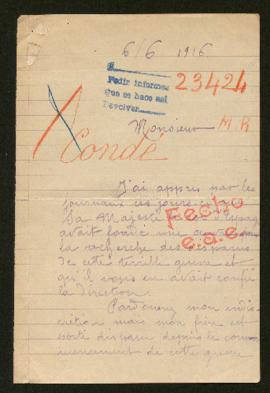 6/6 1916
Pedir informes
que se hace mal
Devolver
23424
Monsieur M R
Conde
J'ai appris par les
journaux ces jours-ci que
Sa Majesté
avait fondé une
la recherche des disparus
de cette terrible guerre et
qu'il vous en avait confié
la direction.
Fecho
e.a.e.
Pardonnez mon indis-
crétion mais mon frère est
porté disparu depuis le com-
mencement de cette guerre